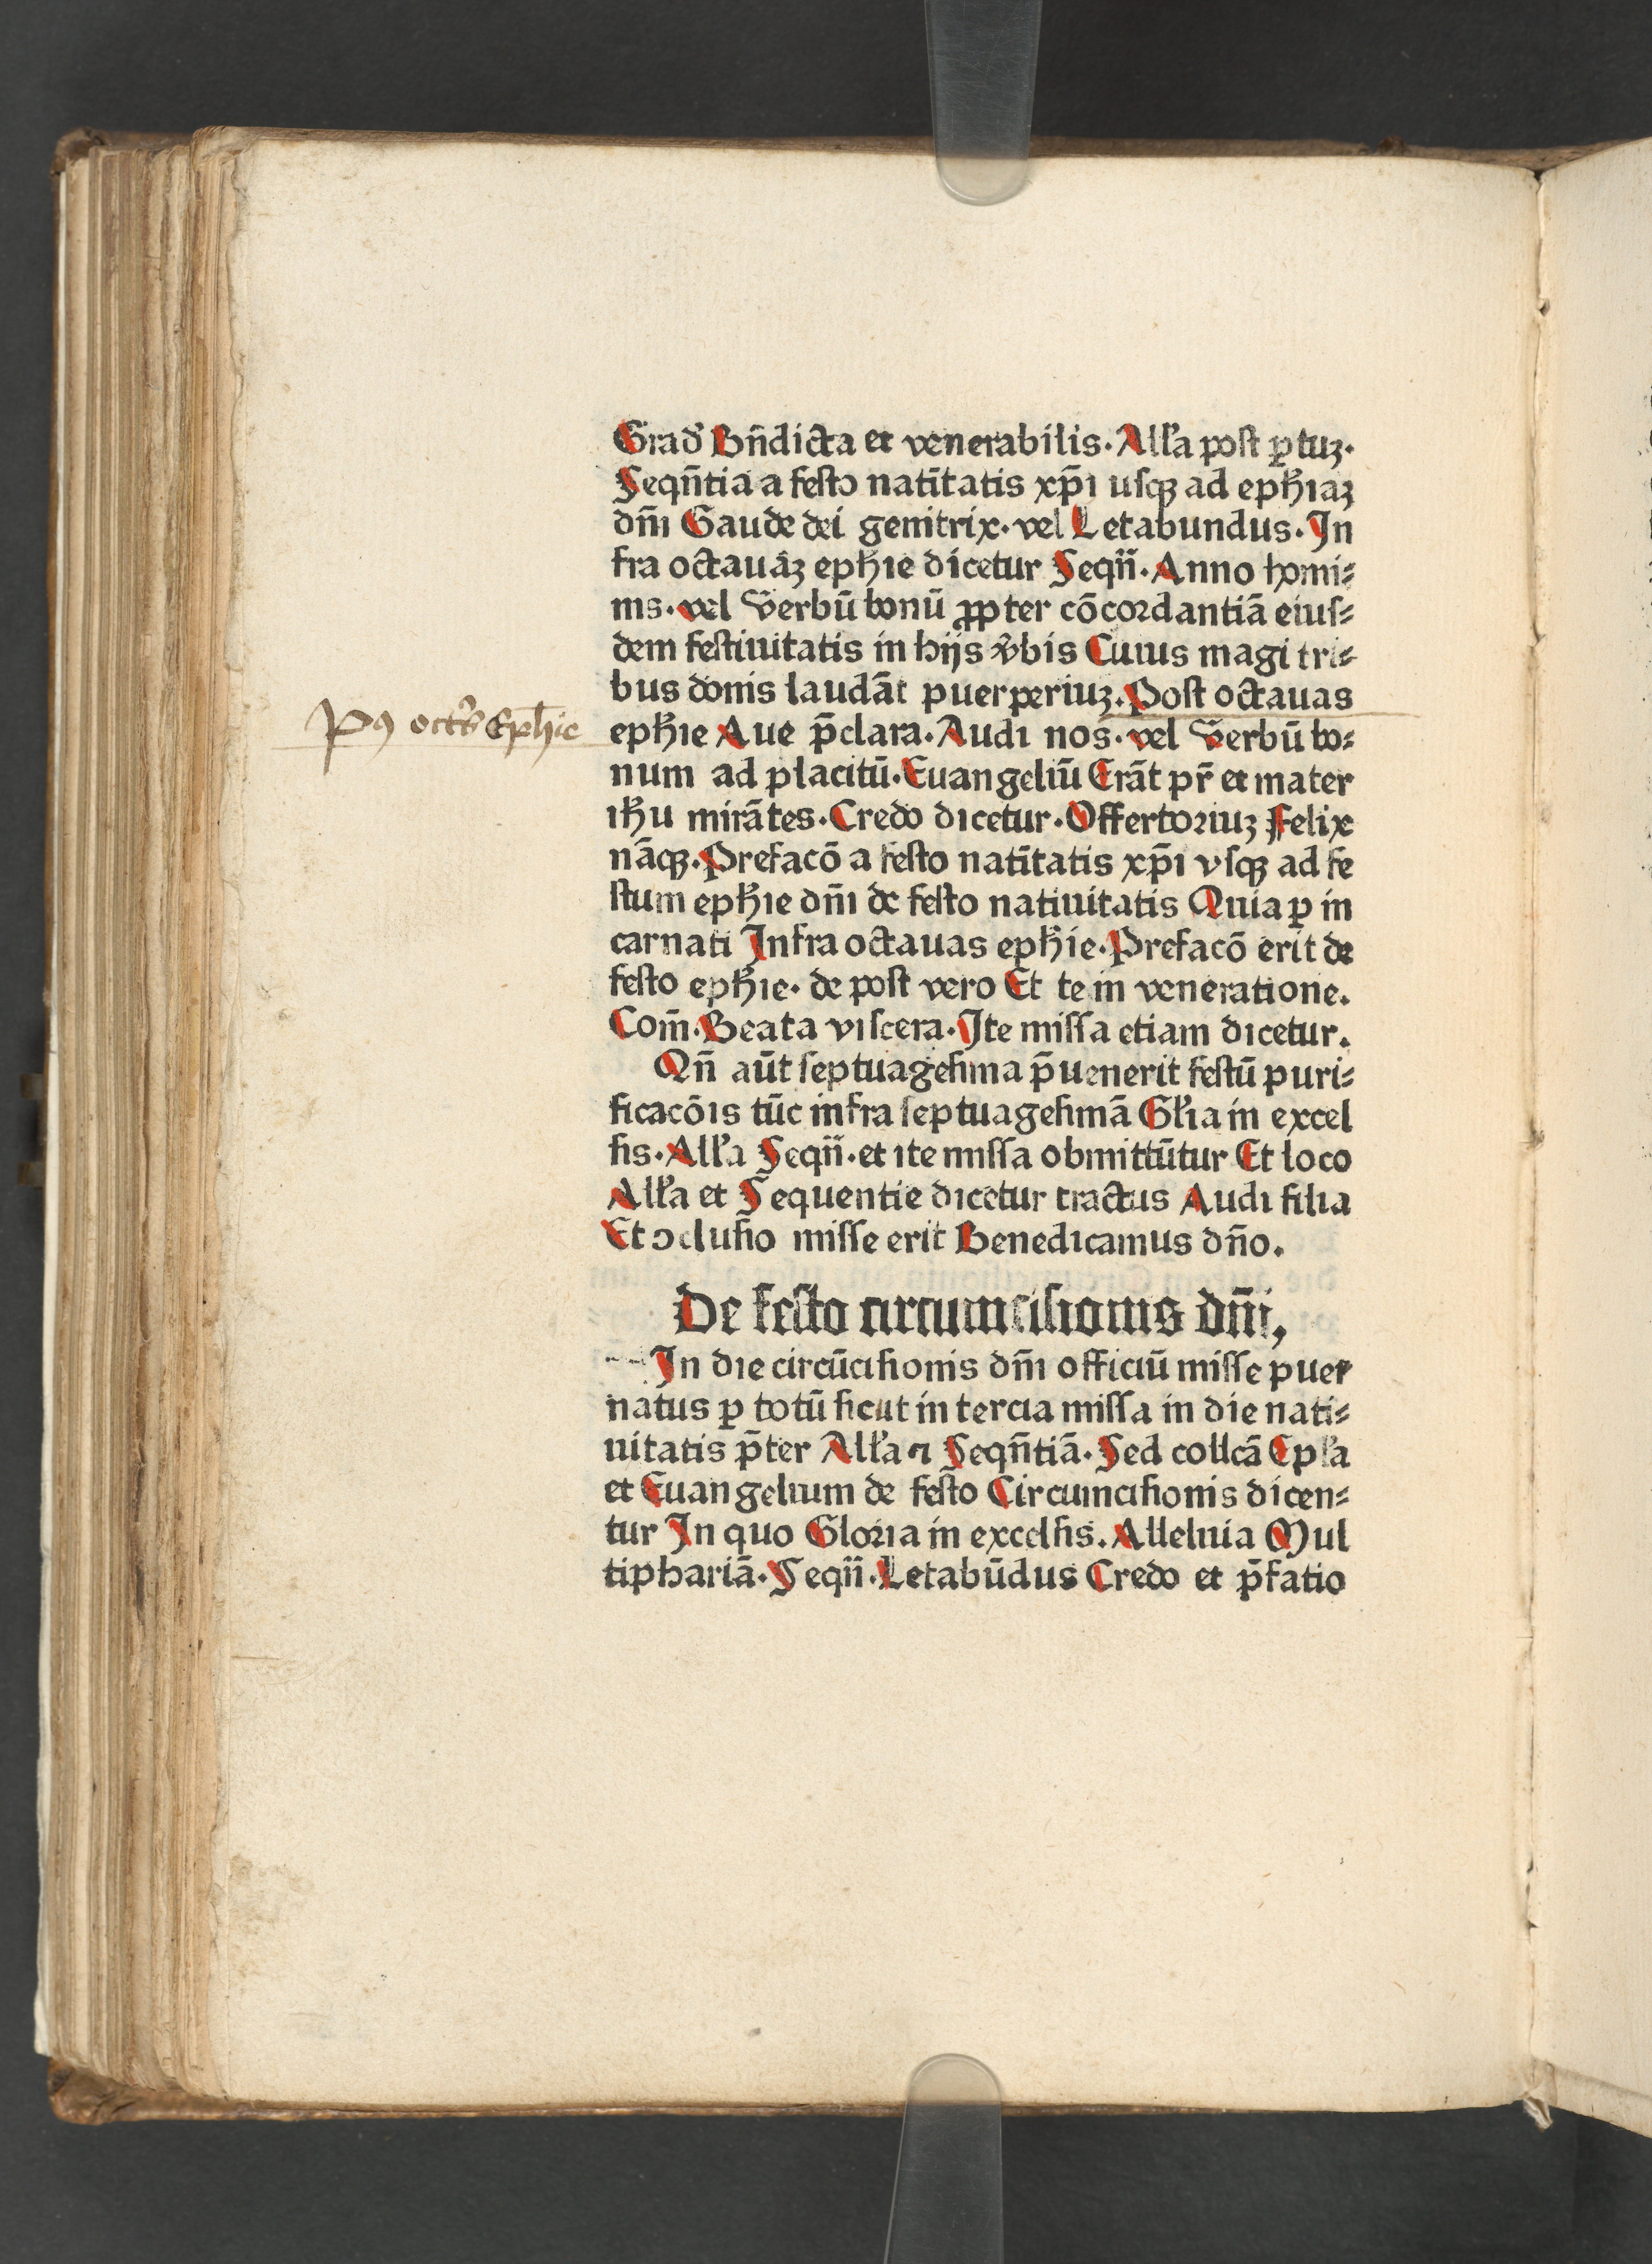 Grad᷑ Bn̄dicta et venerabilis. All̓a post ꝑtuꝫ.
Seqn̄tia a festo natītatis xp̄i usqꝫ ad eph̄iaꝫ
dn̄i Gaude dei genitrix. vel Letabundus. In
fra octauāꝫ eph̄ie dicetur Seqn̄. Anno homi⸗
nis. vel Verbū bonū ꝓpter cōcordantiā eius⸗
dem festiuitatis in hijs v̄bis Cuius magi tri⸗
bus donis laudāt puerperiuꝫ. Post octauas
Pꝰ octas Eph̄ie
eph̄ie Aue p̄clara. Audi nos. vel Verbū bo⸗
num ad placitū. Euangeliū Erāt pr̄ et mater
ih̄u mirātes. Credo dicetur. Offertoriuꝫ Felix
nāqꝫ. Prefacō a festo natītatis xp̄i vsqꝫ ad fe
stum eph̄ie dn̄i de festo natiuitatis Quia ꝑ in
carnati Infra octauas eph̄ie. Prefacō erit de
festo eph̄ie. de post vero Et te in veneratione.
Com̄. Beata viscera. Ite missa etiam dicetur.
Qn̄ aūt septuagesima p̄uenerit festū puri⸗
ficacōis tūc infra septuagesimā Gl̓ia in excel
sis. All̓a Seqn̄. et ite missa obmittūtur Et loco
All̓a et Sequentie dicetur tractus Audi filia
Et ↄclusio misse erit Benedicamus dn̄o.
De festo circumcisionis dn̄i,
In die circūcisionis dn̄i officiū misse puer
natus ꝑ totū sicut in tercia missa in die nati⸗
uitatis p̄ter All̓a ⁊ Seqn̄tiā. Sed collcā Epl̓a
et Euangelium de festo Circumcisionis dicen⸗
tur In quo Gloria in excelsis. Alleluia Mul
tiphariā. Seqn̄. Letabūdus Credo et p̄fatio